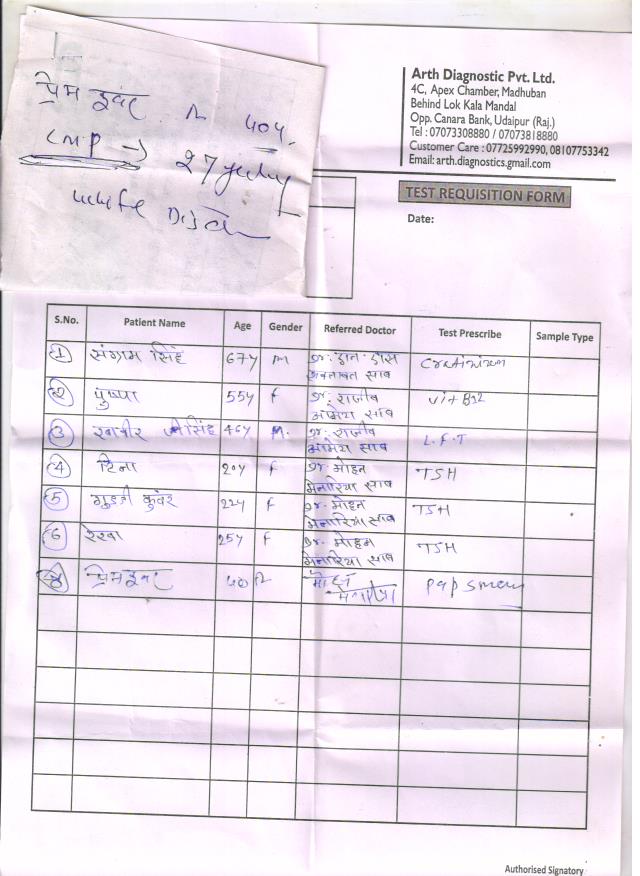 प्रेम
404.
LMP → 27 July
white Disch
Arth Diagnostic Pvt. Ltd.
4C, Apex Chamber, Madhuban
Behind Lok Kala Mandal
Opp. Canara Bank, Udaipur (Raj.)
Tel : 07073308880 / 07073818880
Customer Care : 07725992990, 08107753342
Email: arth.diagnostics.gmail.com
TEST REQUISITION FORM
Date:
S.No. Patient Name Age Gender Referred Doctor Test Prescribe Sample Type
1 संग्राम सिंह 67y m Dr.
साब
2 पुष्पा 55y f Dr. राजीव Vit B12
साब
3 सिंह 45y M. Dr. राजीव L.F.T
साब
4 टिना 20y f Dr. मोहन TSH
मेनारिया साब
5 कुंवर 22y f Dr. मोहन TSH
मेनारिया साब
6 रेखा 25y f Dr. मोहन TSH
मेनारिया साब
प्रेम 40 Pap smear
Authorised Signatory